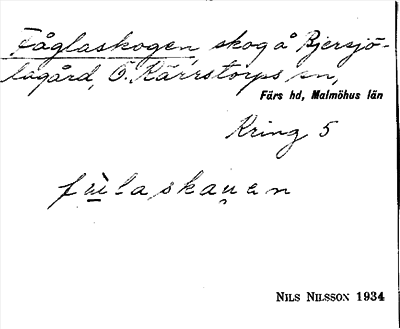 Fåglaskogen, skog å Bjersjö-
lagård, Ö. Kärrstorps sn,
Färs hd, Malmöhus län
Kring 5
NILS NILSSON 1934